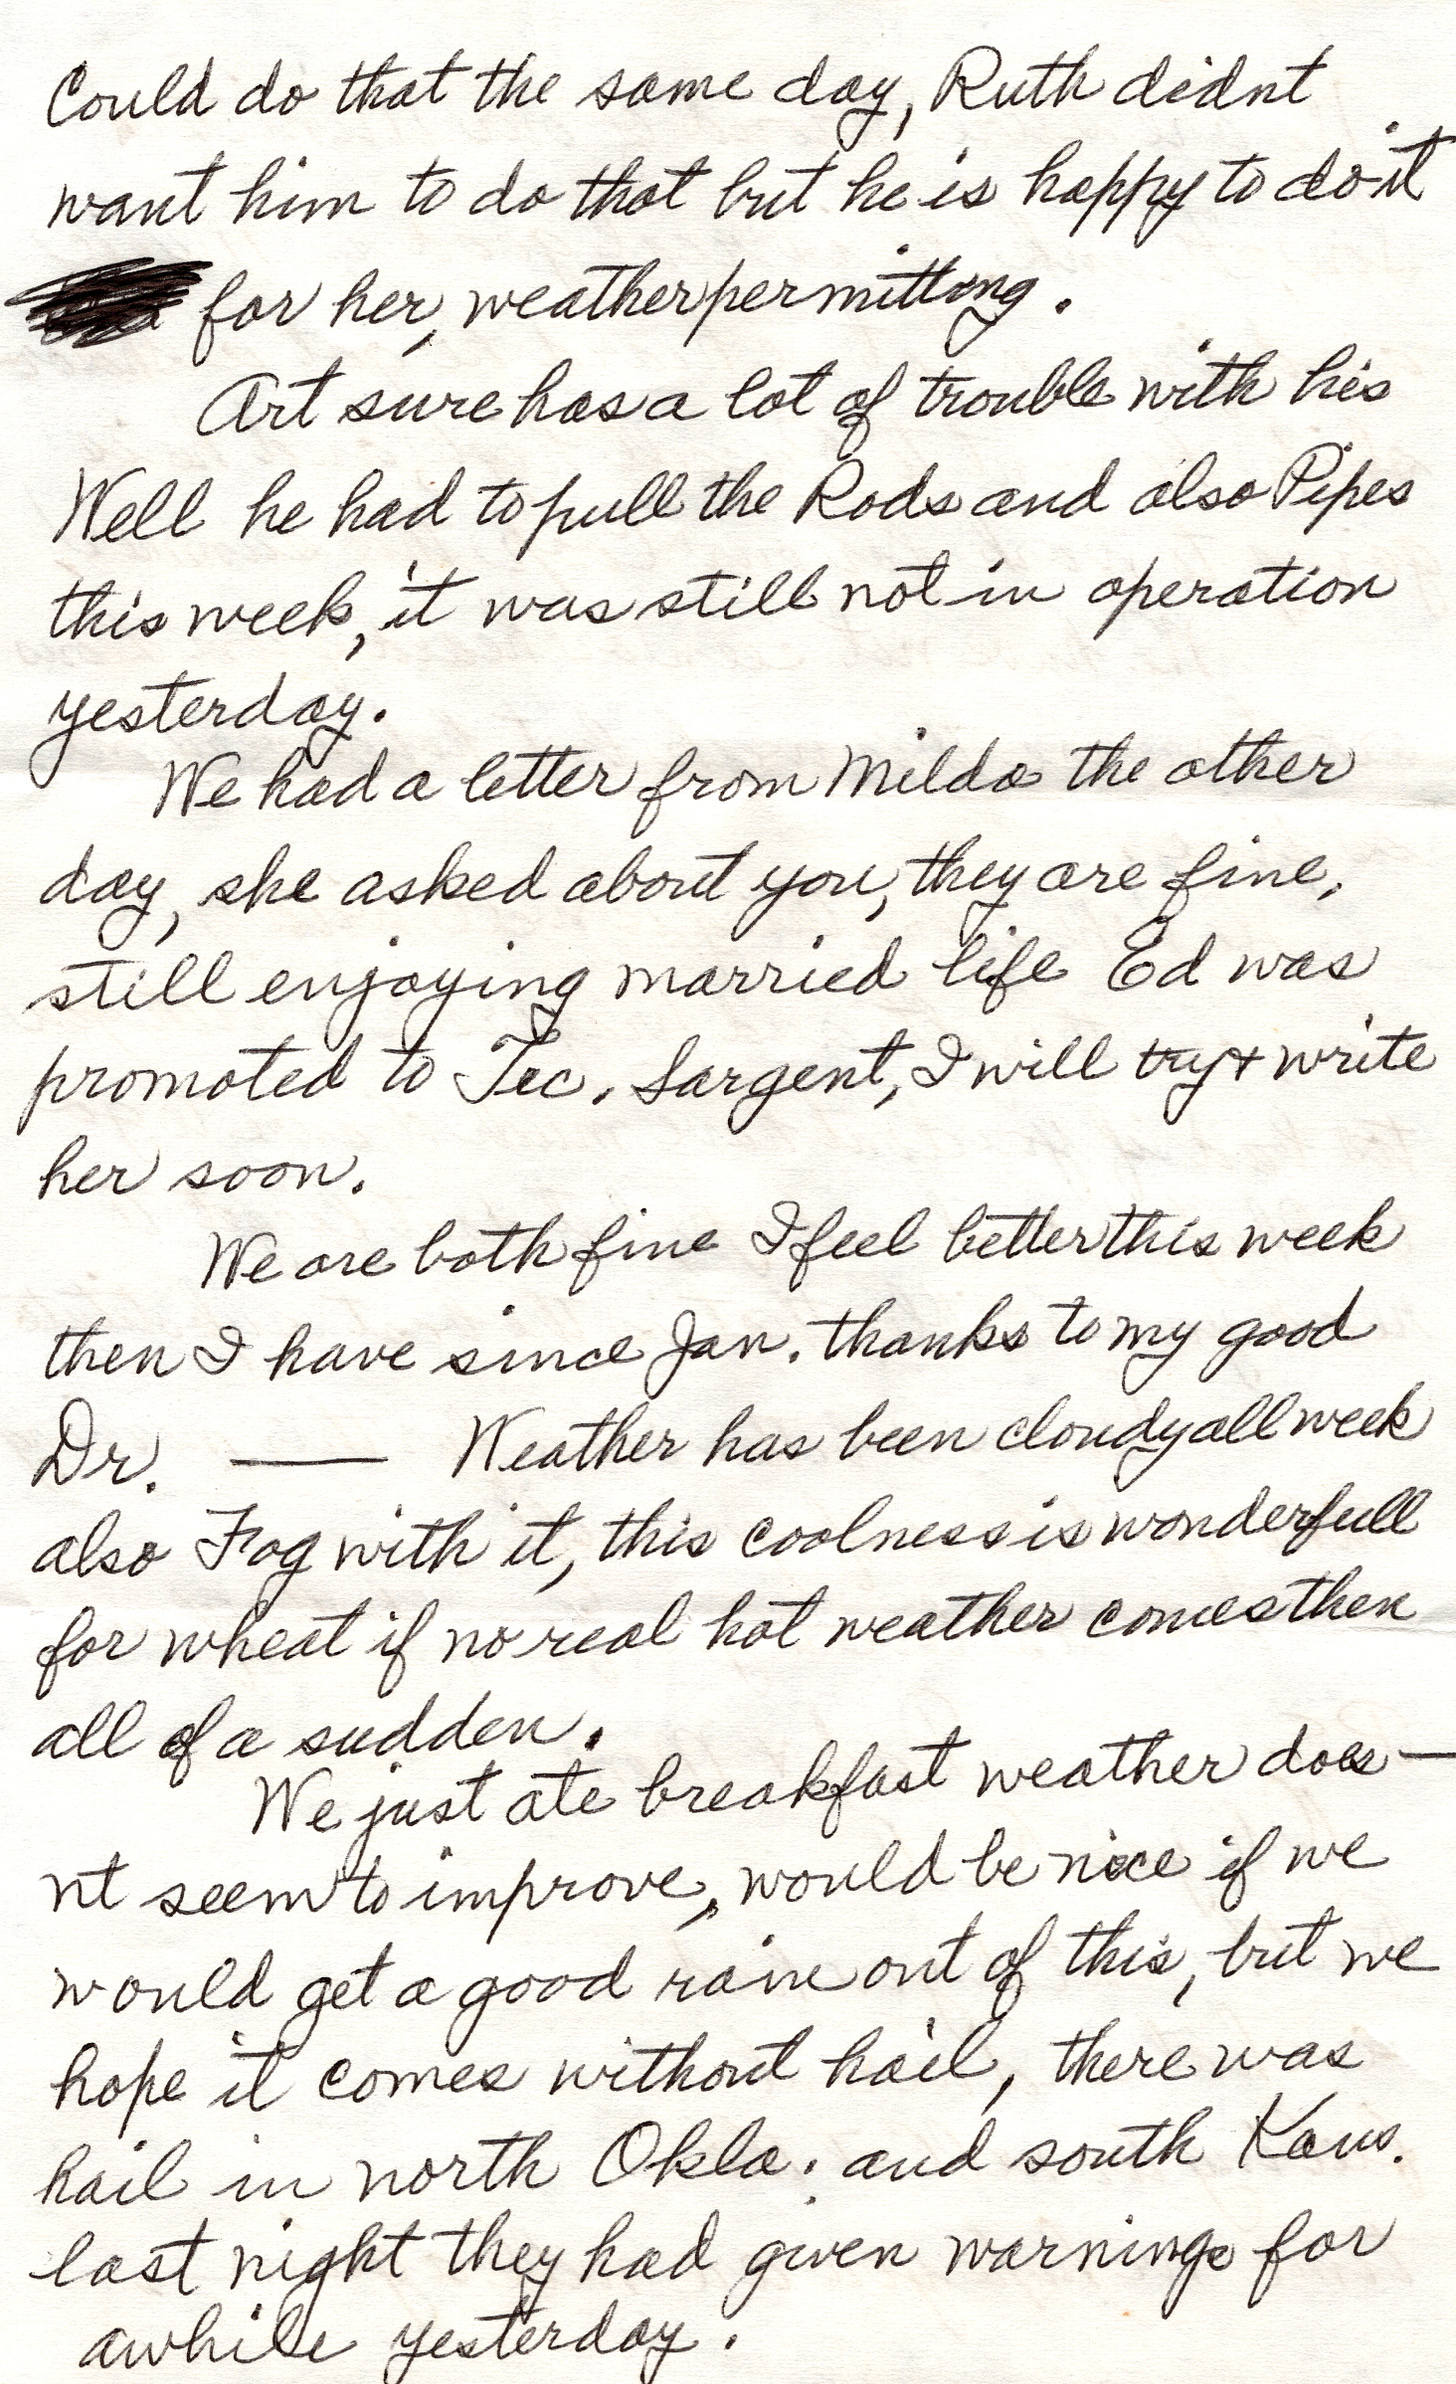 Could do that the same day, Ruth didnt
want him to do that but he is happy to do it
for her, weather permitting.
Art sure has a lot of trouble with his
Well he had to pull the Rods and also Pipes
this week, it was still not in operation
yesterday.
We had a letter from Milda the other
day, she asked about you, they are fine,
still enjoying married life Ed was
promoted to Tec. Sargent, I will try + write
her soon.
We are both fine I feel better this week
then I have since Jan. thanks to my good
Dr. — Weather has been cloudy all week
also Fog with it, this coolness is wonderfull
for wheat if no real hot weather comes then
all of a sudden.
We just ate breakfast weather does—
nt seem to improve, would be nice if we
would get a good rain out of this, but we
hope it comes without hail, there was
hail in north Okla. and south Kans.
last night they had given warnings for
awhile yesterday.